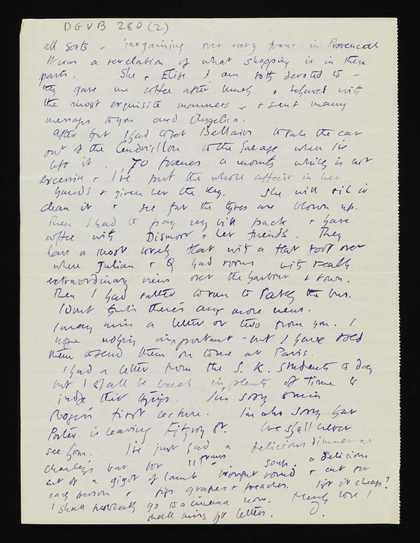 DGVB 280 (2)
all sorts - bargaining over every franc in Provencal
It was a revelation of what shopping is in these
parts. She & Elise I am both devoted to -
they gave me coffee after lunch & behaved with
the most exquisite manners - & sent many
messages to you and Angelica.
After that I had to get Bellairs to take the car
out of the Cendrillon to the garage where I've
left it. 70 francs a month which is not
excessive & I've put the whole affair in her
hands & given her the key. She will oil it
clean it & see that the tyres are blown up.
Then I had to pay my bill pack & have
coffee with Dismorr & her friends. They
have a most lovely flat with a flat roof over
where Julian & Q had rooms with really
extraordinary views over the harbour & town.
Then I had rather to run to catch the bus.
I don't think there's any more news.
I may miss a letter or two from you. I
hope nothing important - but I have told
them to send them on to me at Paris.
I had a letter from the S. K. students today
but I shall be back in plenty of time to
judge their things. I'm sorry to miss
Roger's first lecture. I'm also sorry that
Porter is leaving Fitzroy St. We shall never
see him. I've just had a delicious dinner at
Charley's bar for 11 francs soup, a delicious
cut of a gigot of lamb haricot sound & cut our
each person & figs grapes & peaches. Isn't it cheap?
I shall probably go to a cinema now. Much love!
shall miss yr letter. D.